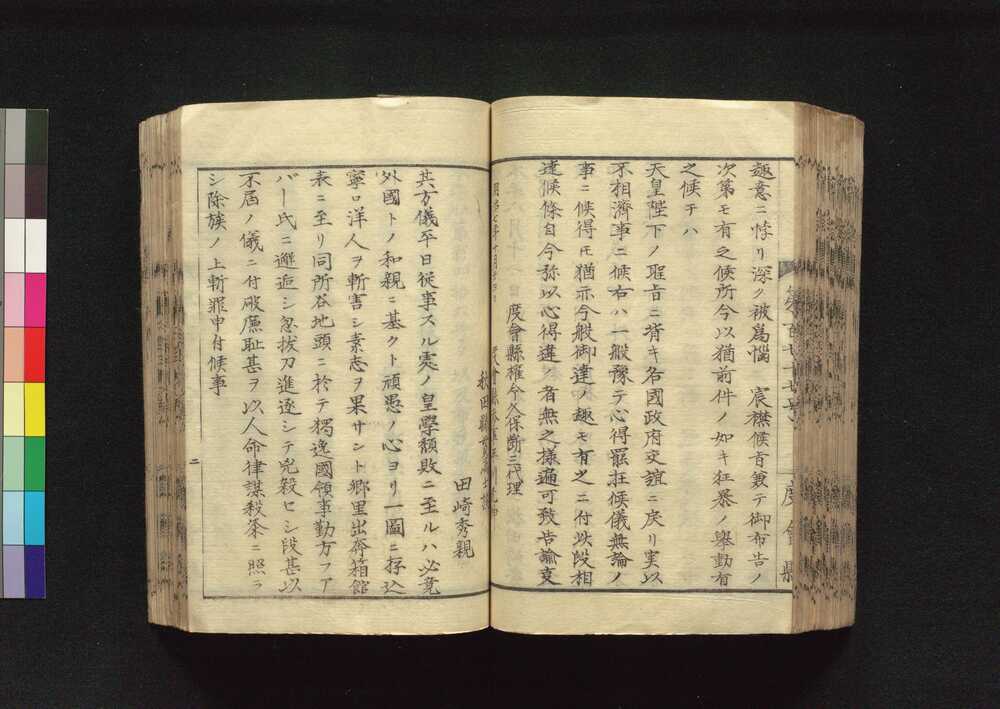 度會縣
趣意ニ悖リ深ク被爲惱 宸襟候旨兼テ御布告ノ
次第モ有之候所今以猶前件ノ如キ狂暴ノ擧動有
之候テハ
天皇陛下ノ聖旨ニ背キ各國政府交誼ニ戻リ実以
不相濟事ニ候右ハ一般豫テ心得罷在候儀無論ノ
事ニ候得圧猶亦今般御達ノ趣モ有之ニ付此段相
達候條自今弥以心得違ノ者無之様遍可致告諭衷
度會縣權令久保断三代理
明治七年十月
秋田縣貫属士族
田崎秀親
其方儀平日従事スル処ノ皇學頽敗ニ至ルハ必竟
外國トノ和親ニ基クト頑愚ノ心ヨリ一圖ニ存込
寧ロ洋人ヲ斬害シ素志ヲ果サント郷里出奔箱館
表ニ至リ同所谷地頭ニ於テ獨逸國領事勤方フア
バー氏ニ邂逅シ忽抜刀進逐シテ兇殺セシ段甚以
不届ノ儀ニ付破廉耻甚ヲ以人命律謀殺条ニ照ラ
シ除族ノ上斬罪申付候事
二